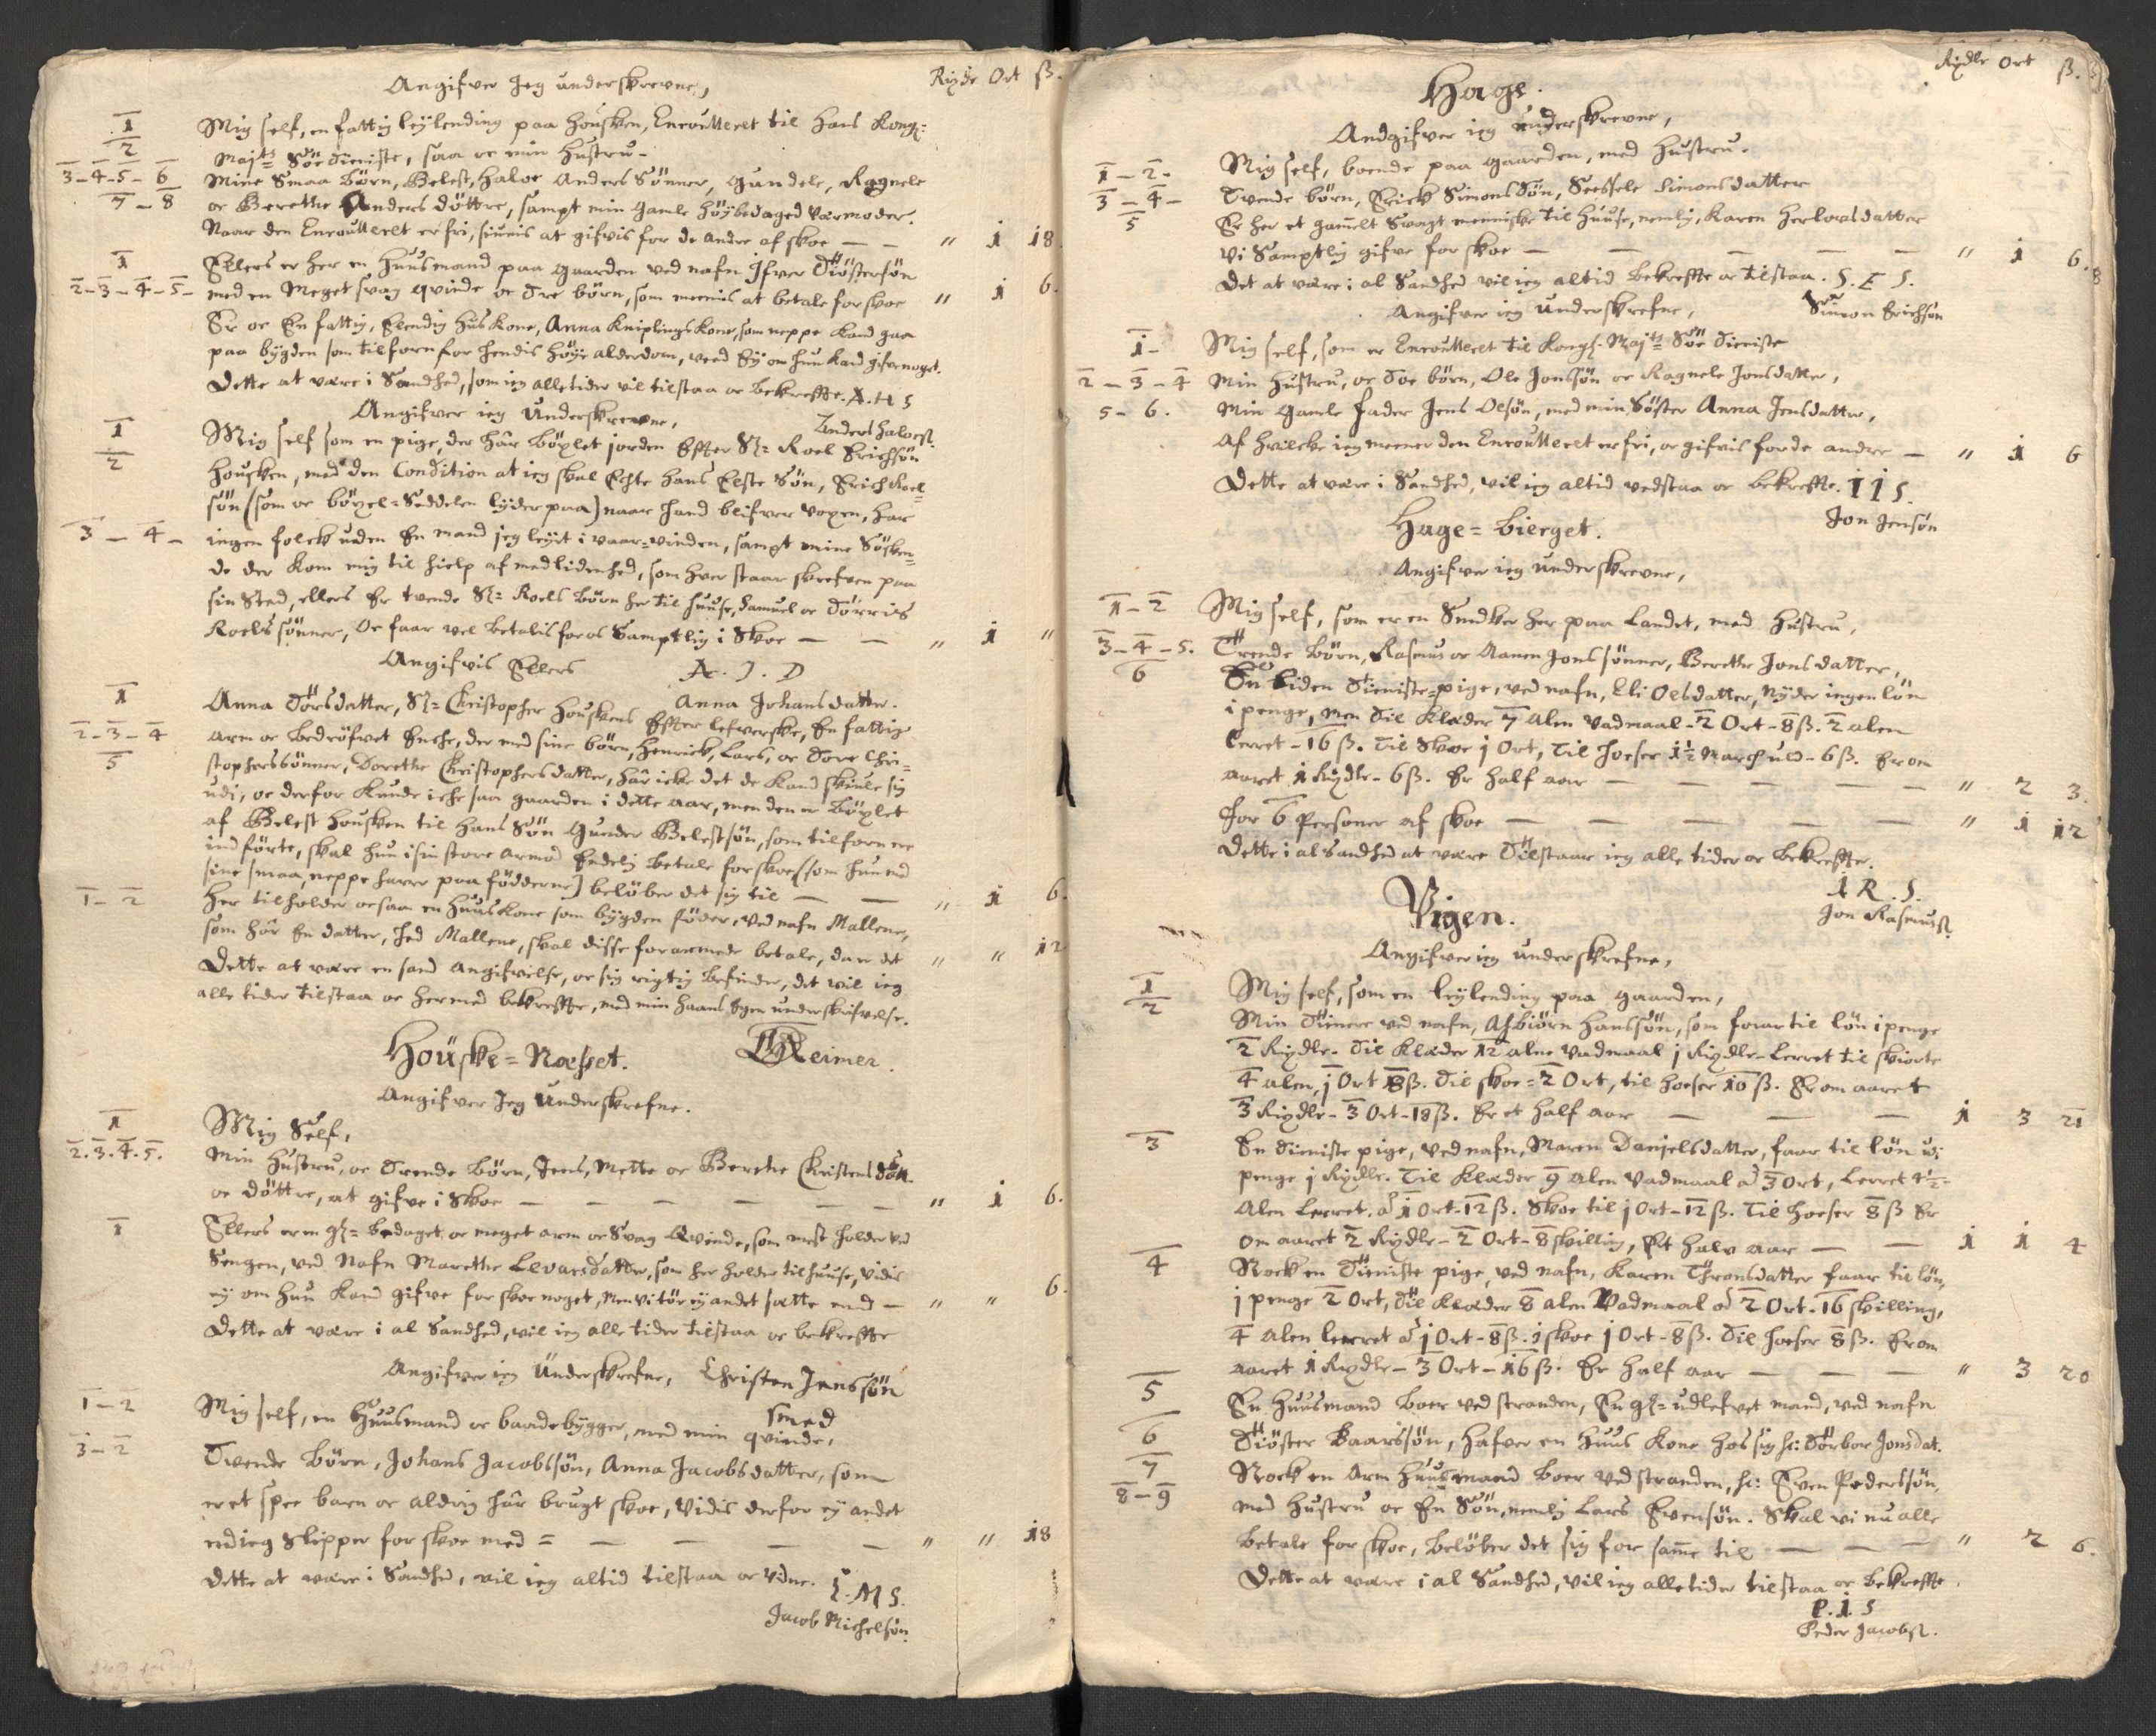 Rixdr Ort ß.
Angifver Jeg underskrevne,
1 Mig self, en fattig leylending paa Housken, Enroulleret til Hans Kongl:
2 Majts Söe Tieniste, saa oc min Hustru-
3-4-5-6 Mine Smaa Börn, Belest, Halvor Anders Sönner, Gundele, Ragnele
7-8 oc Berethe Anders döttre, sampt min gamle höybedaged Værmoder.
Naar den Enroulleret er fri, siunis at gifvis for de andre af skoe — — " 1 18.
1 Ellers er her en Huusmand paa gaarden ved nafn Ifver Tiöstersön
2-3-4-5- med en Meget svag qvinde oc Tre börn, som meenis at betale for skoe " 1 6.
Er oc En fattig, Elendig Huskone, Anna Kniplings kone, som neppe kand gaa
paa bygden som tilforn for hendis höye alderdom, veed Ey om hun kand gifve noget.
Dette at være i Sandhed, som ieg alle tider vil tilstaa oc bekreffte. A. H S
Angifver ieg Underskrevne, Anders Halvorsß.
1 Mig self som en pige, der hâr böxlet jorden Effter Sl= Roel Erichsön
2 Housken, med den Condition at ieg skal Echte hans Elste Sön, Erich Roel=
sön (som oc böxel=Seddelen lyder paa) naar hand blifver voxen, har
3-4- ingen folck uden En mand jeg leyit i vaar=vinden, sampt mine Sösken=
de der kom mig til hielp af medlidenhed, som hver staar skrefven paa
sin Sted, ellers Er tvende Sl= Roels börn her til huuse, Samuel oc Torris
Roels sönner, Oc faar vel betalis for os Samptlig i Skoe — — " 1 "
Angifvis Ellers A. J. D
1 Anna Torsdatter, Sl= Christopher Houskens Effter lefverske, En fattig Anna Johansdatter.
2-3-4 arm oc bedröfvet Enche, der med sine börn, Henrick, Lars, oc Tore Chri=
5 stophersönner, Dorethe Christophersdatter, hâr icke det de kand skiule sig
udi, oc derfor kunde iche saa gaarden i dette aar, men den er böxlet
af Belest Housken til hans Sön Gunder Belestsön, som tilforn ere
indförte, skal hun i sin store armod Endelig betale for skoe (som hun med
sine smaa, neppe haver paa födderne) belöber det sig til — — " 1 6.
1-2 Her tilholder ocsaa en Huuskone som bygden föder, ved nafn Mallene,
som hâr En datter, hed Mallene, skal disse foraermede betale, da er det " " 12
Dette at være en sand angifvelse, oc sig rigtig befinder, det vil ieg
alle tider tilstaa oc hermed bekreffte, med min haands Egen underskrifvelse.
Houske=Næsset. Reimer.
Angifver Jeg Underskrefne.
1 Mig Self,
2.3.4.5. Min Hustru, oc Trende börn, Jens, Mette oc Berethe Christens sön
oc döttre, at gifve i Skoe — — — — — " 1 6.
1 Ellers er en gl= bedaget oc meget arm oc Svag Qvinde, som mest holder ved
Sengen, ved Nafn Marethe Levarsdatter, som her holder til huuse, Vidis
ey om hun kand gifve for skoe noget, men vi tör ey andet sætte end — " " 6.
Dette at være i al Sandhed, vil ieg alle tider tilstaa oc bekreffte
Angifver ieg Underskrefne, Christen Jenssön
1-2 Mig self, en Huusmand oc baadebygger, med min qvinde, smed
3-2 Tvende Börn, Johans Jacobssön, Anna Jacobsdatter, som
er et spee barn oc aldrig hâr brugt skoe, Vidis derfor ey andet
end ieg Slipper for skoe med = — — — — " " 18
Dette at være i Sandhed, vil ieg altid tilstaa oc Vidne. I. M S.
Jacob Michelsön
Rixdlr Ort ß.
Hage.
Andgifver ieg underskrevne,
1-2. Mig self, boende paa gaarden, med Hustru.
3-4- Tvende börn, Erick Simons Sön, Seessele Simonsdatter
5 Er her et gammelt Svagt menniske til Huuse, nemlig, Karen Herlovsdatter
Vi Samptlig gifve for skoe — — — — — " 1 6.
Det at være i al Sandhed vil ieg altid bekreffte oc tilstaa. S. E S.
Angifver ieg Underskrefne, Simon Erichsön
1- Mig self, som er Enroulleret til Kongl. Majts Söe Tieniste
2-3-4 Min Hustru, oc Toe börn, Ole Jonssön oc Ragnele Jonsdatter,
5-6. Min gamle fader Jens Olesön, med min Söster Anna Jensdatter,
Af hvilcke ieg meener den Enroulleret er fri, oc gifvis for de andre — " 1 6
Dette at være i Sandhed, vil ieg altid vedstaa oc bekreffte. I I S.
Hage=bierget. Jon Jensön
Angifver ieg underskrevne,
1-2 Mig self, som er en Snedker her paa Landet, med Hustru,
3-4-5. Trende Börn, Rasmus oc Aanen Jons sönner, Berethe Jons datter,
6 En liden Tieniste=pige, ved nafn, Eli Olsdatter, Nyder ingen lön
i penge, Men til Klæder 7 Alen Vadmaal-2 Ort-8ß. 2 alen
lerret-16ß. Til Skoe 1 Ort, til hoeser 1½ March uld-6ß. Er om
aaret 1 Rixdlr-6ß. Er half aar — — — — — " 2 3.
for 6 Personer af skoe — — — — — " 1 12
Dette i al Sandhed at være Tilstaar ieg alle tider oc bekreffter.
Vigen. I R. S.
Jon Rasmusß.
Angifver ieg Underskrefne,
1 Mig self, som en leylending paa gaarden,
2 Min Tienere ved nafn, Asbiörn Hanssön, som faar til lön i penge
2 Rixdlr. Til Klæder 12 alne vadmaal 1 Rixdlr-Lerret til skiorte
4 alen, 1 Ort 8ß. Til skoe=2 Ort, til hoeser 10ß. Er om aaret
3 Rixdlr-3 Ort-18ß. Er et half aar — — — 1 3 21
3 En Tieniste pige, ved nafn, Maren Danjelsdatter, faar til lön udi
penge 1 Rixdlr. Til Klæder 9 Alen Vadmaal à 3 Ort, Lerret
Alen Lerret. à 1 Ort-12ß. Skoe til 1 Ort-12ß. Til hoeser 8ß Er
om aaret 2 Rixdlr-2 Ort-8 skilling, Et halv aar — — 1 1 4
4 Nock en Tieniste pige, ved nafn, Karen Thronsdatter faar til lön,
i penge 2 Ort, til Klæder 8 alen Vadmaal à 2 Ort-16 skilling,
4 alen leerret à 1 Ort-8ß. i skoe 1 Ort-8ß. Til hoeser 8ß. Er om
aaret 1 Rixdlr-3 Ort-16ß. Er half aar — — — " 3 20
5 En Huusmand boer ved stranden, En gl= udlefvet mand, ved nafn
6 Tiöster Baarssön, hafver en Huus kone hos sig h: Torbor Jonsdat.
7 Nock en Arm Huusmand boer ved stranden, h: Even Pederssön,
8-9 med Hustru oc En Sön, nemlig Lars Evensön. Skal vi nu alle
betale for skoe, belöber det sig for samme til — — — " 2 6.
Dette at være i al Sandhed, vil ieg alle tider tilstaa oc bekreffte.
P. I. S
Peder Jacobsß.